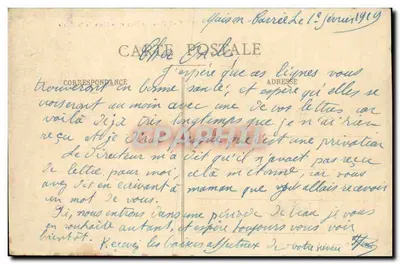 Maison Carrée Le 1e février 1919
CARTE POSTALE
Cher Oncle
CORRESPONDANCE ADRESSE
J'espère que ces lignes vous
trouveront en bonne santé, et espère qu'elles se
croiseront au moins avec une de vos lettres, car
voilà déjà très longtemps que je n'ai rien
reçu et je vous que c'est une privation
Le Directeur m'a dit qu'il n'avait pas reçu
de lettre pour moi, celà m'étonne, car vous
avez dit en écrivant à maman que j'allais recevoir
un mot de vous.
Ici, nous entrons dans une période de beau je vous
en souhaite autant, et espère toujours vous voir
bientôt. Recevez les baisers affectueux de votre